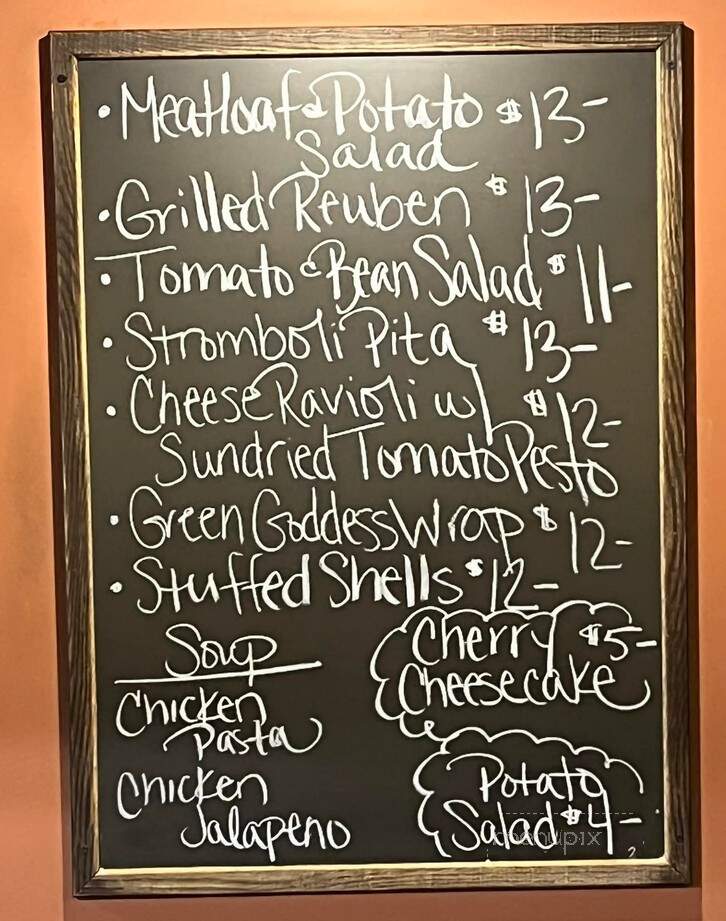 • Meatloaf & Potato $13-
Salad
• Grilled Reuben $13-
• Tomato & Bean Salad $11-
• Stromboli Pita $13-
• Cheese Ravioli w/ $12-
Sundried Tomato Pesto
• Green Goddess Wrap $12-
• Stuffed Shells $12-
Soup
Chicken
Pasta
Chicken
Jalapeno
Cherry $5-
Cheesecake
Potato
Salad $4-
menupix